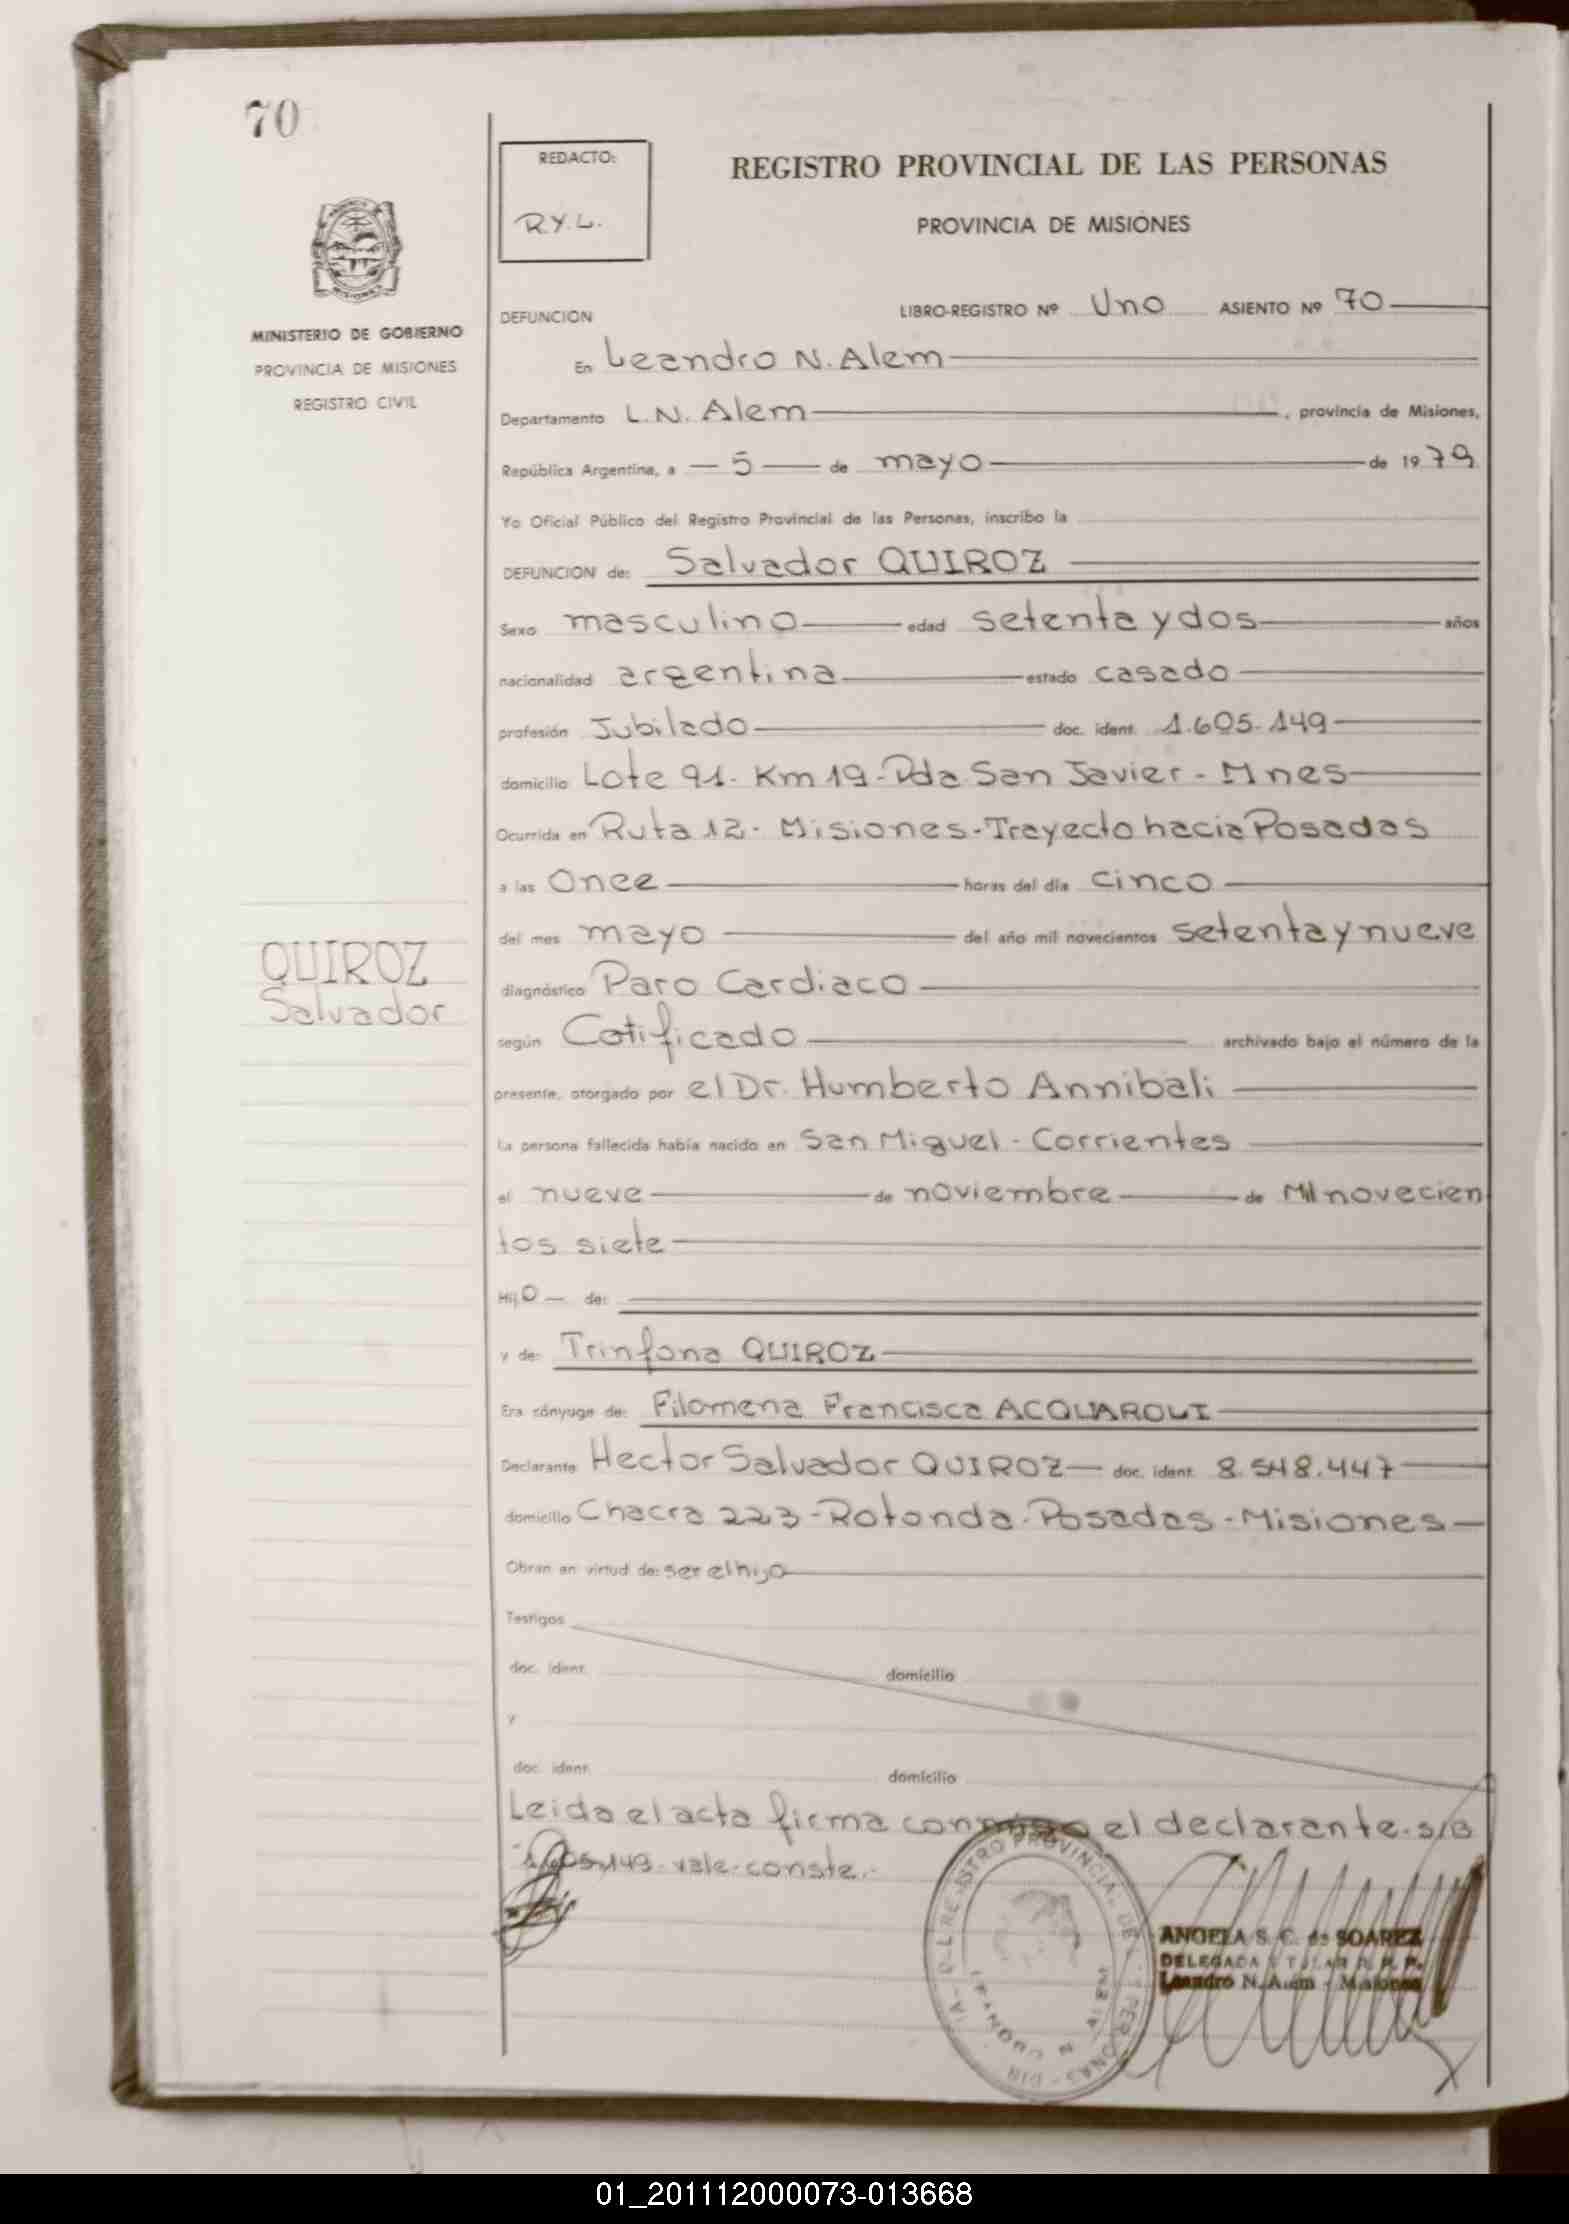 70
REDACTO:
R.Y.L.
REGISTRO PROVINCIAL DE LAS PERSONAS
PROVINCIA DE MISIONES
MISIONES
MINISTERIO DE GOBIERNO
PROVINCIA DE MISIONES
REGISTRO CIVIL
DEFUNCION LIBRO-REGISTRO Nº Uno ASIENTO Nº 70
En Leandro N. Alem
Departamento L.N. Alem, provincia de Misiones,
República Argentina, a 5 de mayo de 1979
Yo Oficial Público del Registro Provincial de las Personas, inscribo la
DEFUNCION de: Salvador QUIROZ
Sexo masculino edad setenta y dos años
nacionalidad argentina estado casado
profesión Jubilado doc. ident. 1.605.149
domicilio Lote 91. Km 19-Pda San Javier - Mnes
Ocurrida en Ruta 12. Misiones-Trayecto hacia Posadas
a las Once horas del día cinco
del mes mayo del año mil novecientos setenta y nueve
diagnóstico Paro Cardiaco
QUIROZ
Salvador
según Cetificado archivado bajo el número de la
presente, otorgado por el Dr. Humberto Annibali
La persona fallecida había nacido en San Miguel - Corrientes
el nueve de noviembre de Mil novecien
tos siete
Hijo de:
y de: Trinfona QUIROZ
Era cónyuge de: Filomena Francisca ACQUAROLI
Declarante Hector Salvador QUIROZ doc. ident. 8.548.447
domicilio Chacra 223-Rotonda-Posadas-Misiones
Obran en virtud de: ser el hijo
Testigos
doc. ident. domicilio
y
doc. ident. domicilio
Leida el acta firma conmigo el declarante. s/b
1.605.149. vale. conste.-
ANGELA S. C. de SOAREZ
DELEGADA TITULAR R. P. P.
Leandro N. Alem - Misiones
01_201112000073-013668